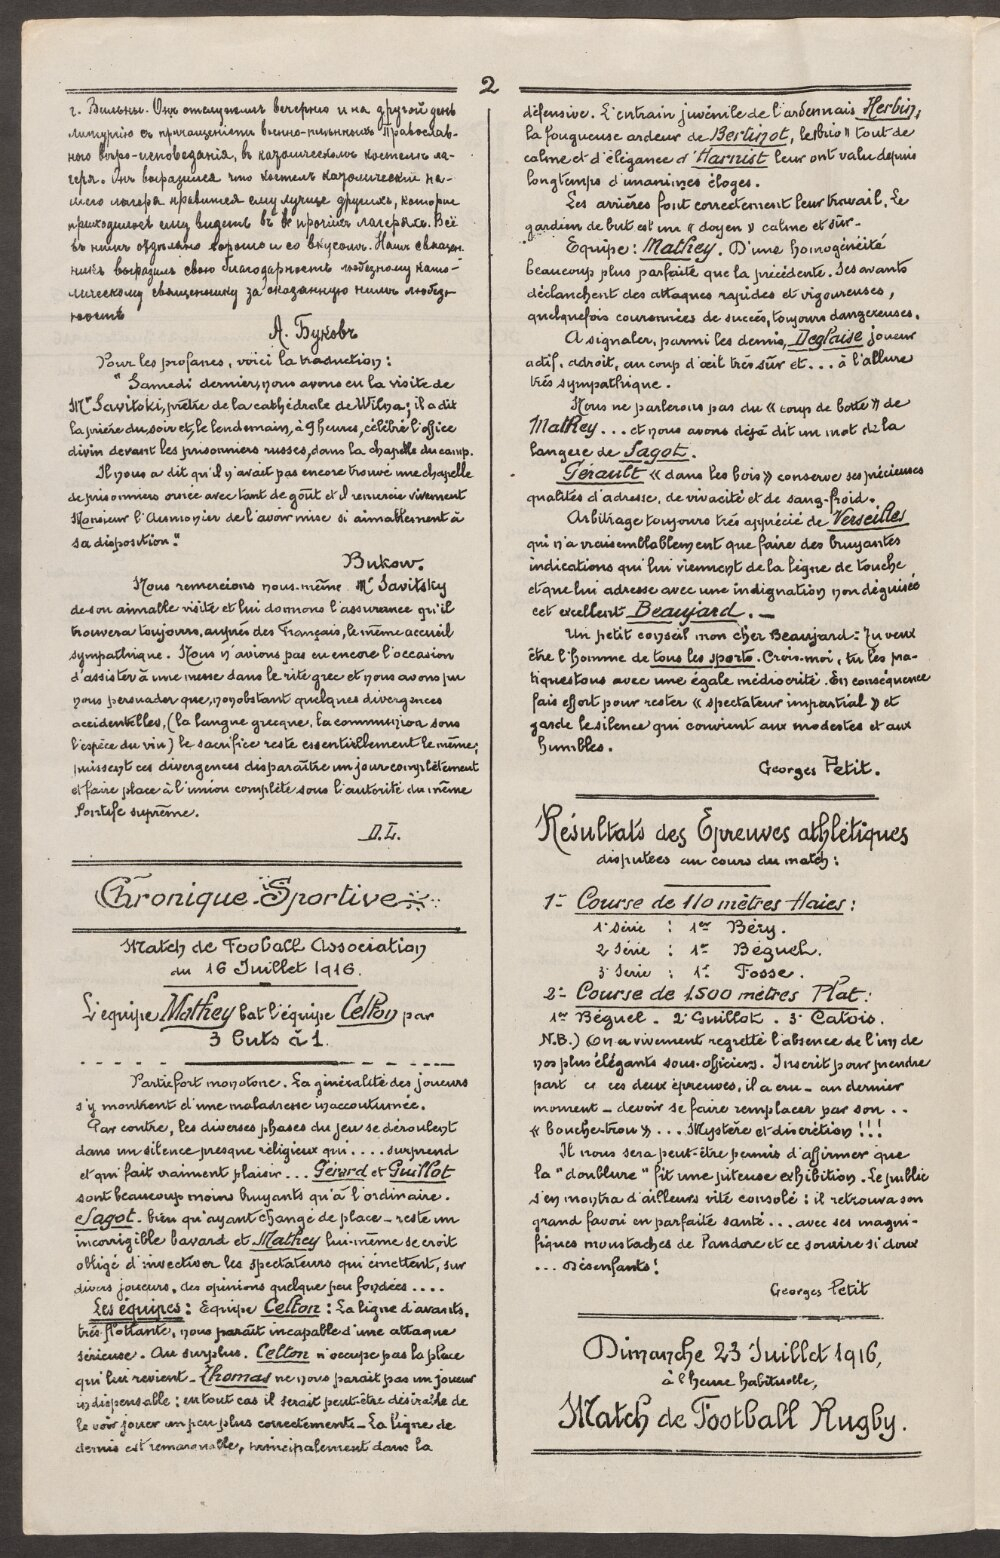 2
г. Вильны. Онъ отслужилъ вечерню и на другой день
литургію съ причащеніемъ военно-плѣнныхъ Православ-
наго вѣро-исповеданія, въ католическомъ костелѣ ла-
геря. Онъ выразился что костелъ католическій на-
шего лагеря нравится ему лучше другихъ, которые
приходилось ему видеть въ прочихъ лагеряхъ. Всё
въ нимъ сдѣлано хорошо и со вкусомъ. Нашъ священ-
никъ выразилъ свою благодарность любезному като-
лическому священнику за оказанную нимъ любез-
ность
А. Буковъ
Pour les profanes, voici la traduction :
" Samedi dernier, nous avons eu la visite de
Mr Savitoki, prêtre de la cathédrale de Wilna ; il a dit
la prière du soir et, le lendemain, à 9 heures, célébré l'office
divin devant les prisonniers russes, dans la chapelle du camp.
Il nous a dit qu'il n'avait pas encore trouvé une chapelle
de prisonniers ornée avec tant de goût et il remercie vivement
Monsieur l'Aumonier de l'avoir mise si aimablement à
sa disposition."
Bukow.
Nous remercions nous-même Mr Savitsky
de son aimable visite et lui donnons l'assurance qu'il
trouvera toujours, auprès des Français, le même accueil
sympathique. Nous n'avions pas eu encore l'occasion
d'assister à une messe dans le rite grec et nous avons pu
nous persuader que, nonobstant quelques divergences
accidentelles, (la langue grecque, la communion sous
l'espèce du vin) le sacrifice reste essentiellement le même;
puissent ces divergences disparaître un jour complètement
et faire place à l'union complète sous l'autorité du même
Pontife suprême.
D.L.
Chronique Sportive
Match de Football Association
du 16 Juillet 1916.
L'équipe Mathey bat l'équipe Celton par
3 buts à 1.
Partie fort monotone. La généralité des joueurs
s'y montrent d'une maladresse inaccoutumée.
Par contre, les diverses phases du jeu se déroulent
dans un silence presque réligieux qui .... surprend
et qui fait vraiment plaisir ... Gérard et Guillot
sont beaucoup moins bruyants qu'à l'ordinaire.
Sagot - bien qu'ayant changé de place - reste un
incorrigible bavard et Mathey lui-même se croit
obligé d'invectiver les spectateurs qui émettent, sur
divers joueurs, des opinions quelque peu fondées ....
Les équipes : Equipe Celton : La ligne d'avants,
très flottante, nous paraît incapable d'une attaque
sérieuse. Au surplus, Celton n'occupe pas la place
qui lui revient - Thomas ne nous parait pas un joueur
indispensable ; en tout cas il serait peut-être désirable de
le voir jouer un peu plus correctement - La ligne de
demis est remarquable, principalement dans la
défensive. L'entrain juvénile de l'ardennais Herbin,
la fougueuse ardeur de Bertinot, le "brio" tout de
calme et d'élégance d'Harnist leur ont valu depuis
longtemps d'unanimes éloges.
Les arrières font correctement leur travail. Le
gardien de but est un « doyen » calme et sûr -
Equipe : Mathey. D'une homogénéité
beaucoup plus parfaite que la précédente. Ses avants
déclanchent des attaques rapides et vigoureuses,
quelquefois couronnées de succès, toujours dangereuses.
A signaler, parmi les demis, Deglaise joueur
actif, adroit, au coup d'œil très sûr et ... à l'allure
très sympathique.
Nous ne parlerons pas du « coup de botte » de
Mathey ... et nous avons déjà dit un mot de la
langue de Sagot.
Gérault « dans les bois » conserve ses précieuses
qualités d'adresse, de vivacité et de sang-froid.
Arbitrage toujours très apprécié de Verseilles
qui n'a vraisemblablement que faire des bruyantes
indications qui lui viennent de la ligne de touche
et que lui adresse avec une indignation non déguisée
cet excellent Beaujard. -
Un petit conseil mon cher Beaujard : Tu veux
être l'homme de tous les sports. Crois-moi, tu les pra-
tiques tous avec une égale médiocrité. En conséquence
fais effort pour rester « spectateur impartial » et
garde le silence qui convient aux modestes et aux
humbles.
Georges Petit.
Résultats des Epreuves athlétiques
disputées au cours du match :
1º Course de 110 mètres Haies :
1e Série : 1er Béry.
2e Série : 1er Béguel.
3e Série : 1er Fosse.
2º Course de 1500 mètres Plat :
1er Béguel - 2e Guillot - 3e Catois.
N.B.) On a vivement regretté l'absence de l'un de
nos plus élégants sous-officiers. Inscrit pour prendre
part à ces deux épreuves, il a cru - au dernier
moment - devoir se faire remplacer par son ..
« bouche-trou » ... Mystère et discrétion !!!
Il nous sera peut-être permis d'affirmer que
la "doublure" fit une piteuse exhibition. Le public
s'en montra d'ailleurs vite consolé : il retrouva son
grand favori en parfaite santé ... avec ses magni-
fiques moustaches de Pandore et ce sourire si doux
... des enfants !
Georges Petit
Dimanche 23 Juillet 1916,
à l'heure habituelle,
Match de Football Rugby.